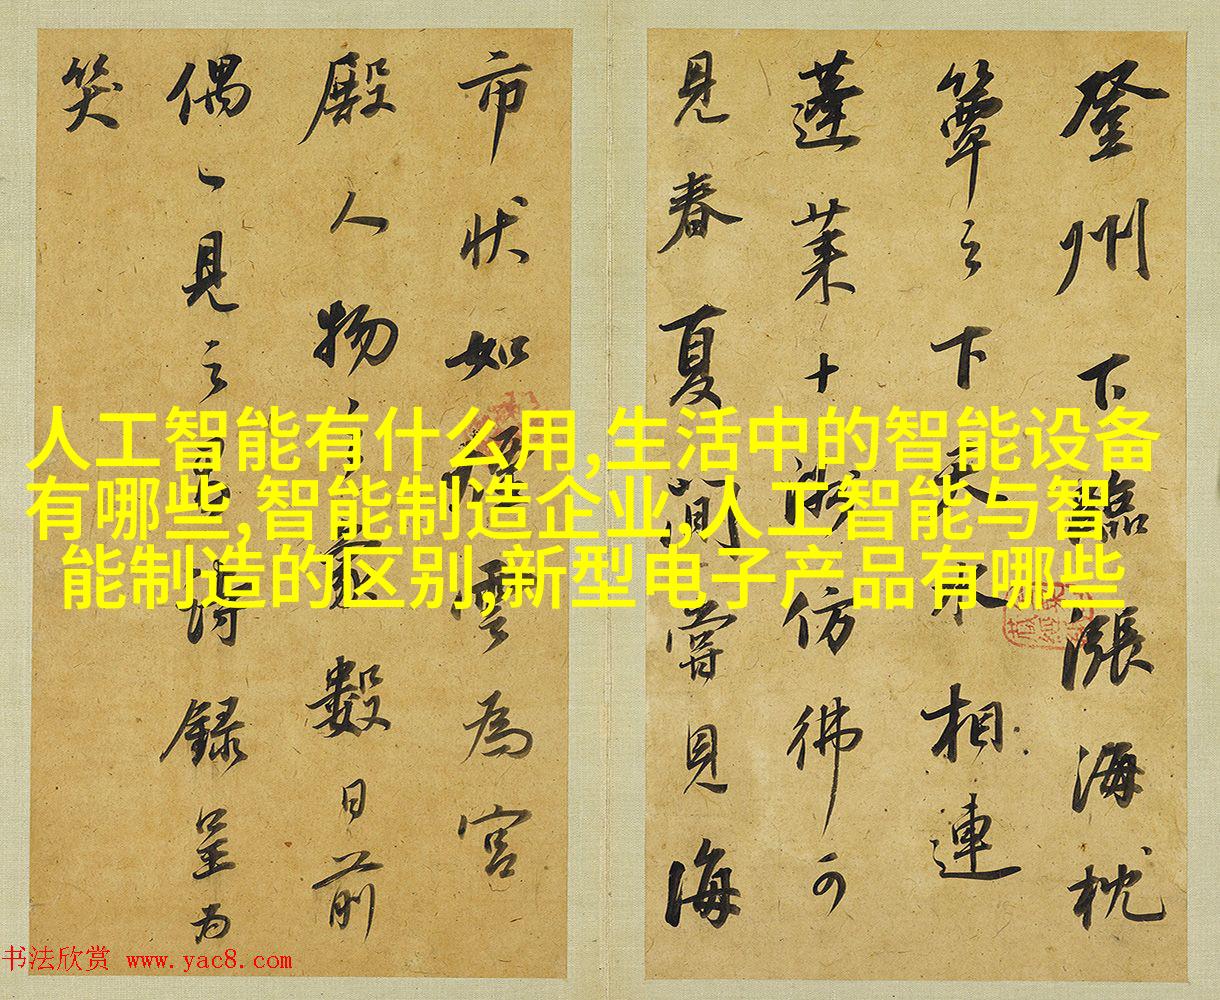 登州下臨漲海枕
簟之下天水相連
蓬莱十洲仿彿可
見春夏間嘗見海
市状如煙雲為宫
殿人物之象數日前
偶見之詩録呈為
笑
人工智能有什么用,生活中的智能设备
有哪些,智能制造企业,人工智能与智
能制造的区别,新型电子产品有哪些
书法欣赏 www.yac8.com